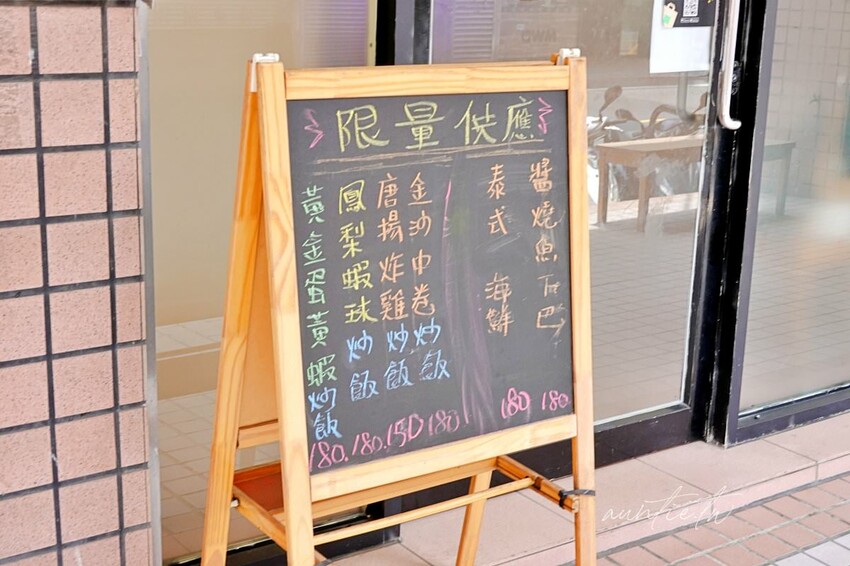 限量供應
醬燒魚下巴 180
泰式 海鮮 180
金沙中卷炒飯 180
唐揚炸雞炒飯 150
鳳梨蝦球炒飯 180.
黃金蛋黃蝦炒飯 180.
auntie.tw